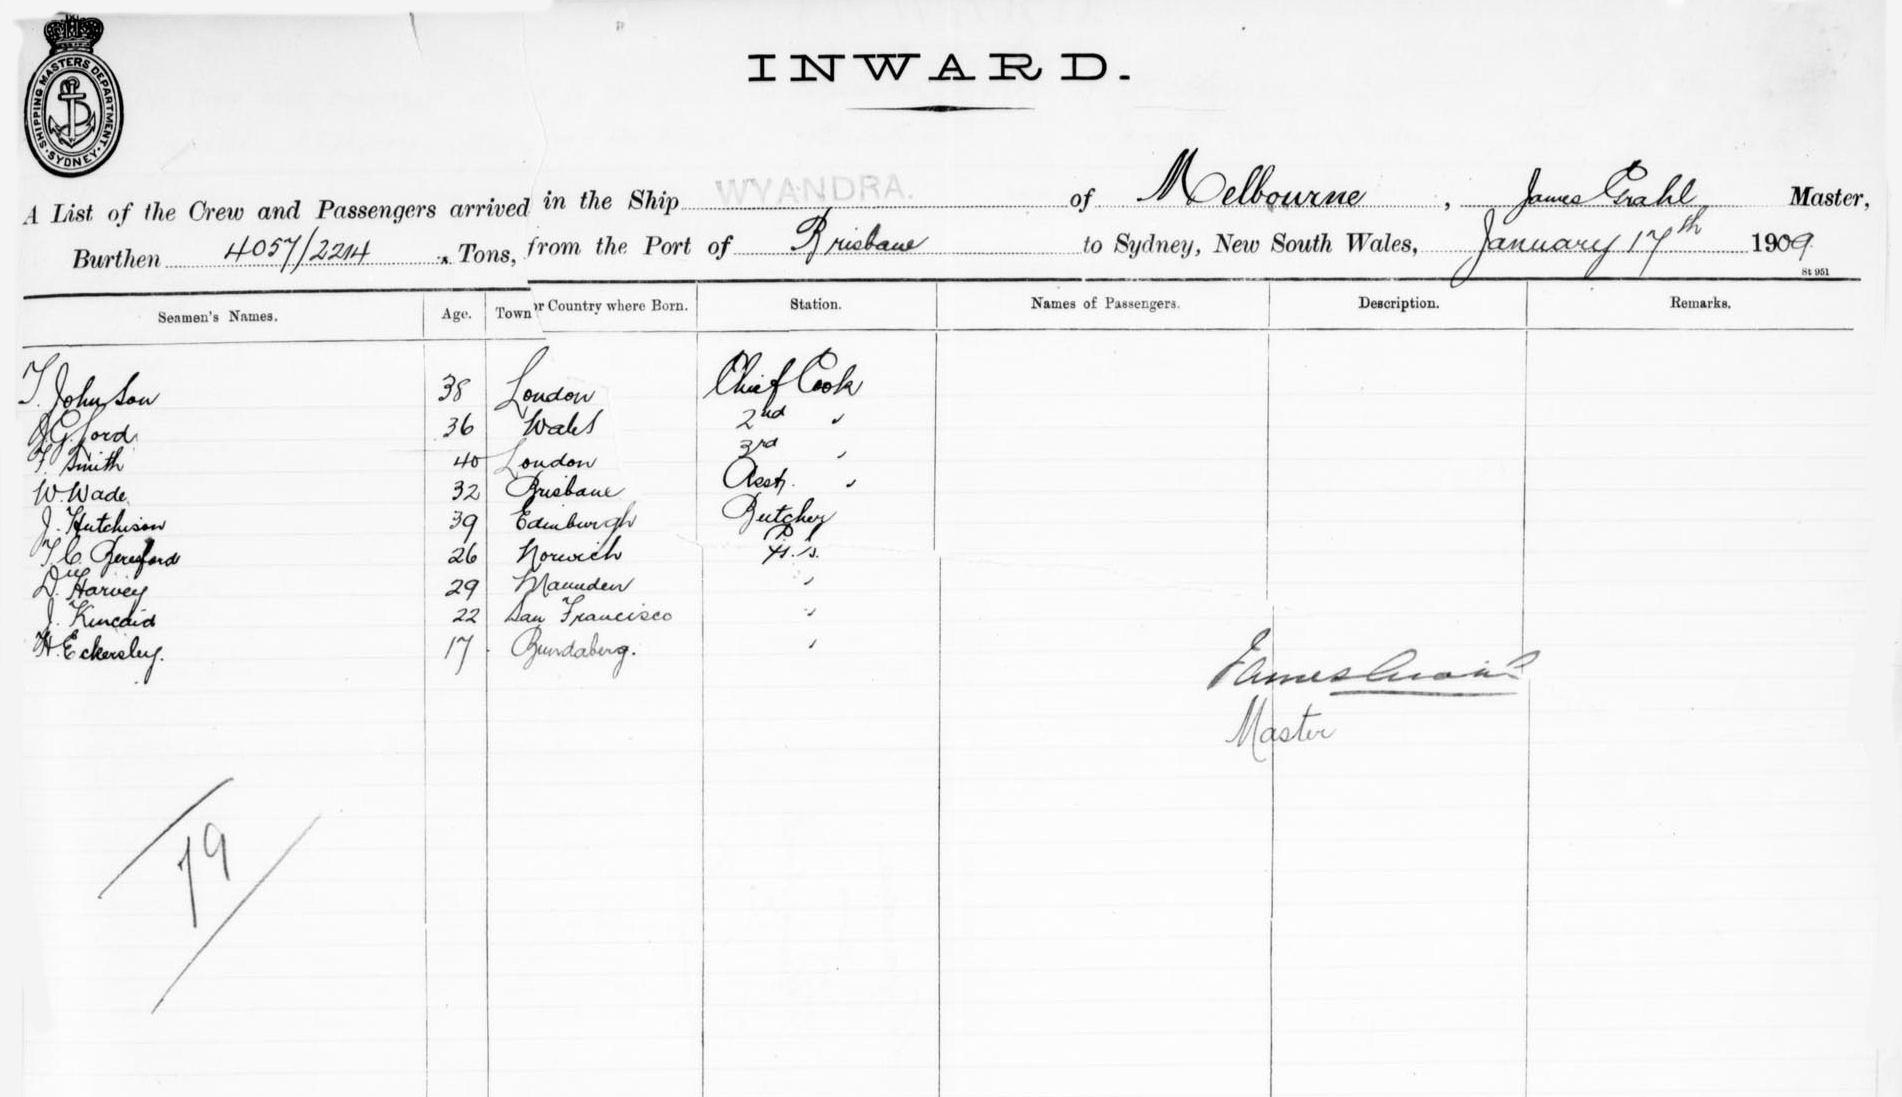 SHIPPING MASTERS DEPARTMENT. SYDNEY.
INWARD.
A List of the Crew and Passengers arrived in the Ship WYANDRA. of Melbourne, James Grahl Master,
Burthen 4057/2214 Tons, from the Port of Brisbane to Sydney, New South Wales, January 17th 1909
St 951
Seamen's Names. Age. Town or Country where Born. Station. Names of Passengers. Description. Remarks.
T. Johnson 38 London Chief Cook
J.G. Ford 36 Wales 2nd "
F. Smith 40 London 3rd "
W. Wade 32 Brisbane Asst. "
J. Hutchison 39 Edinburgh Butcher
T. C. Beresford 26 Norwich
D. Harvey 29 "
J. Kincaid 22 San Francisco "
H. Eckersley. 17 Bundaberg. "
James Grahl
Master
79